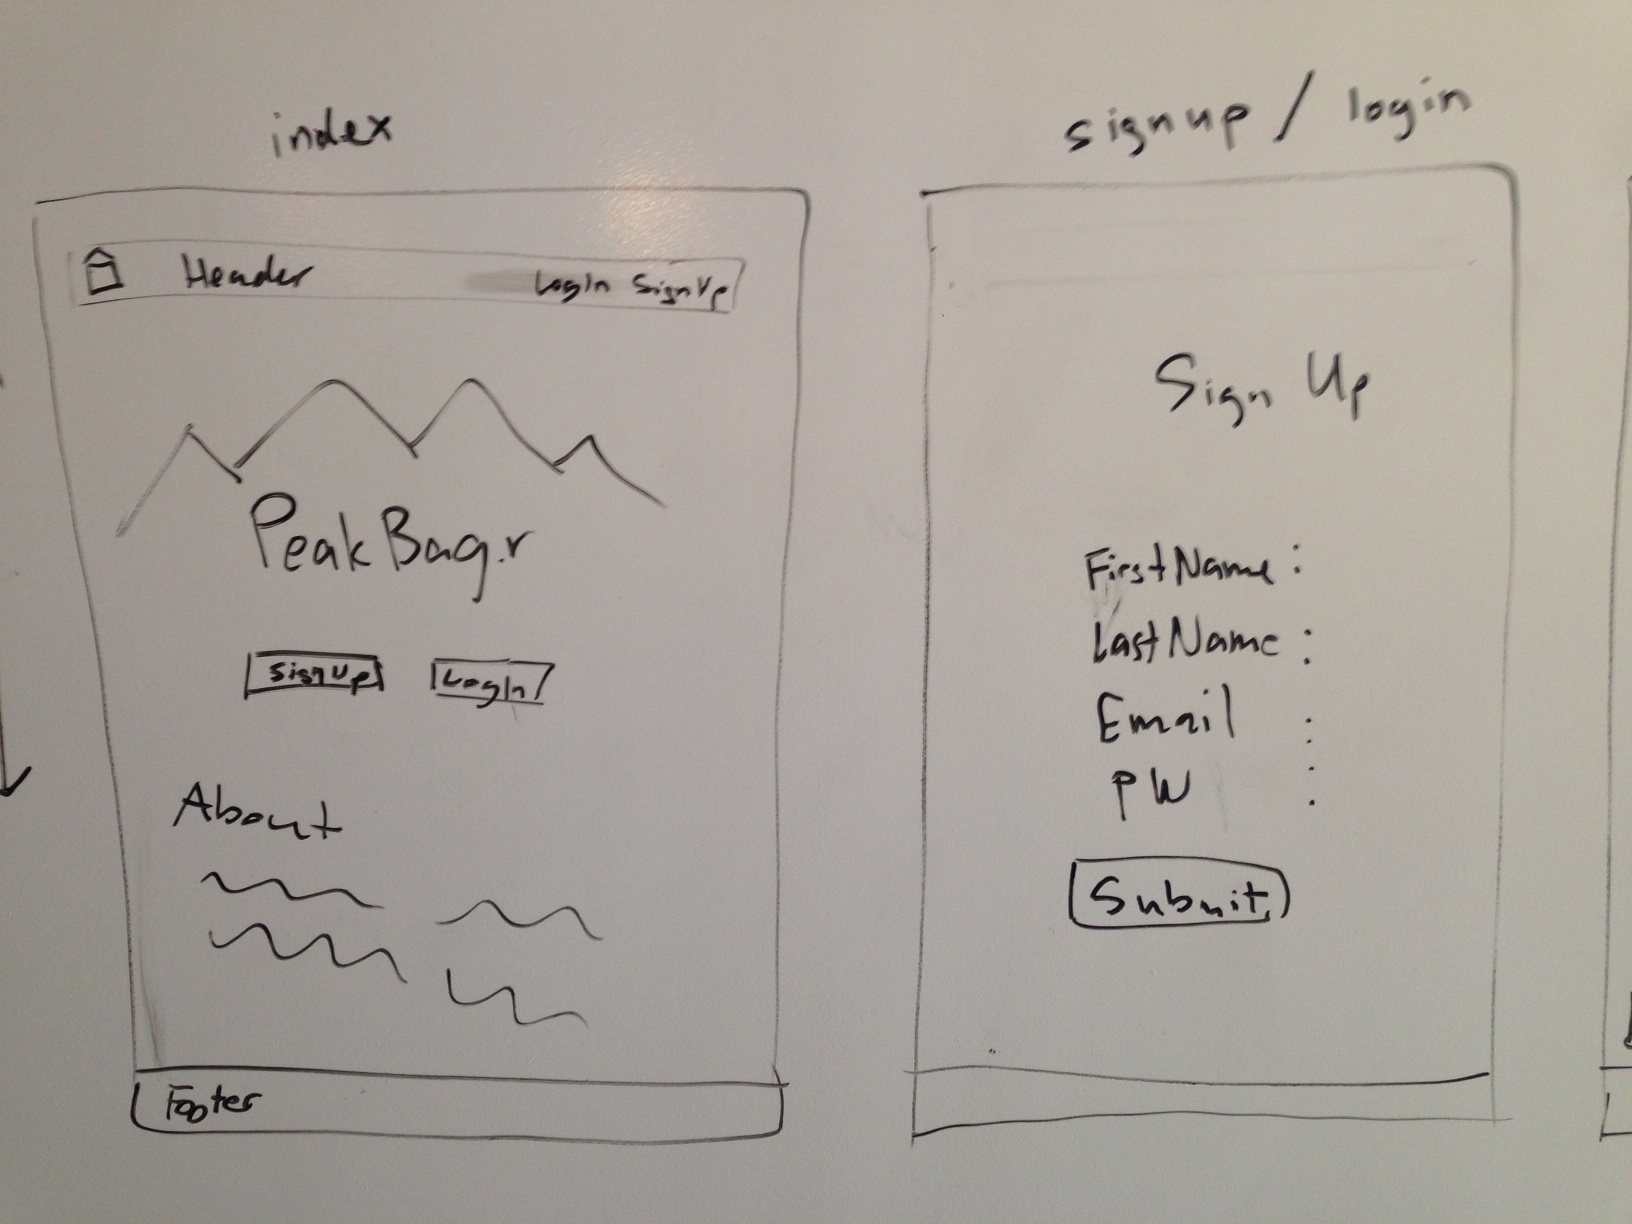 index
Header LogIn SignUp
PeakBag.r
SignUp LogIn
About
Footer
signup / login
Sign Up
FirstName :
LastName :
Email :
PW :
Submit